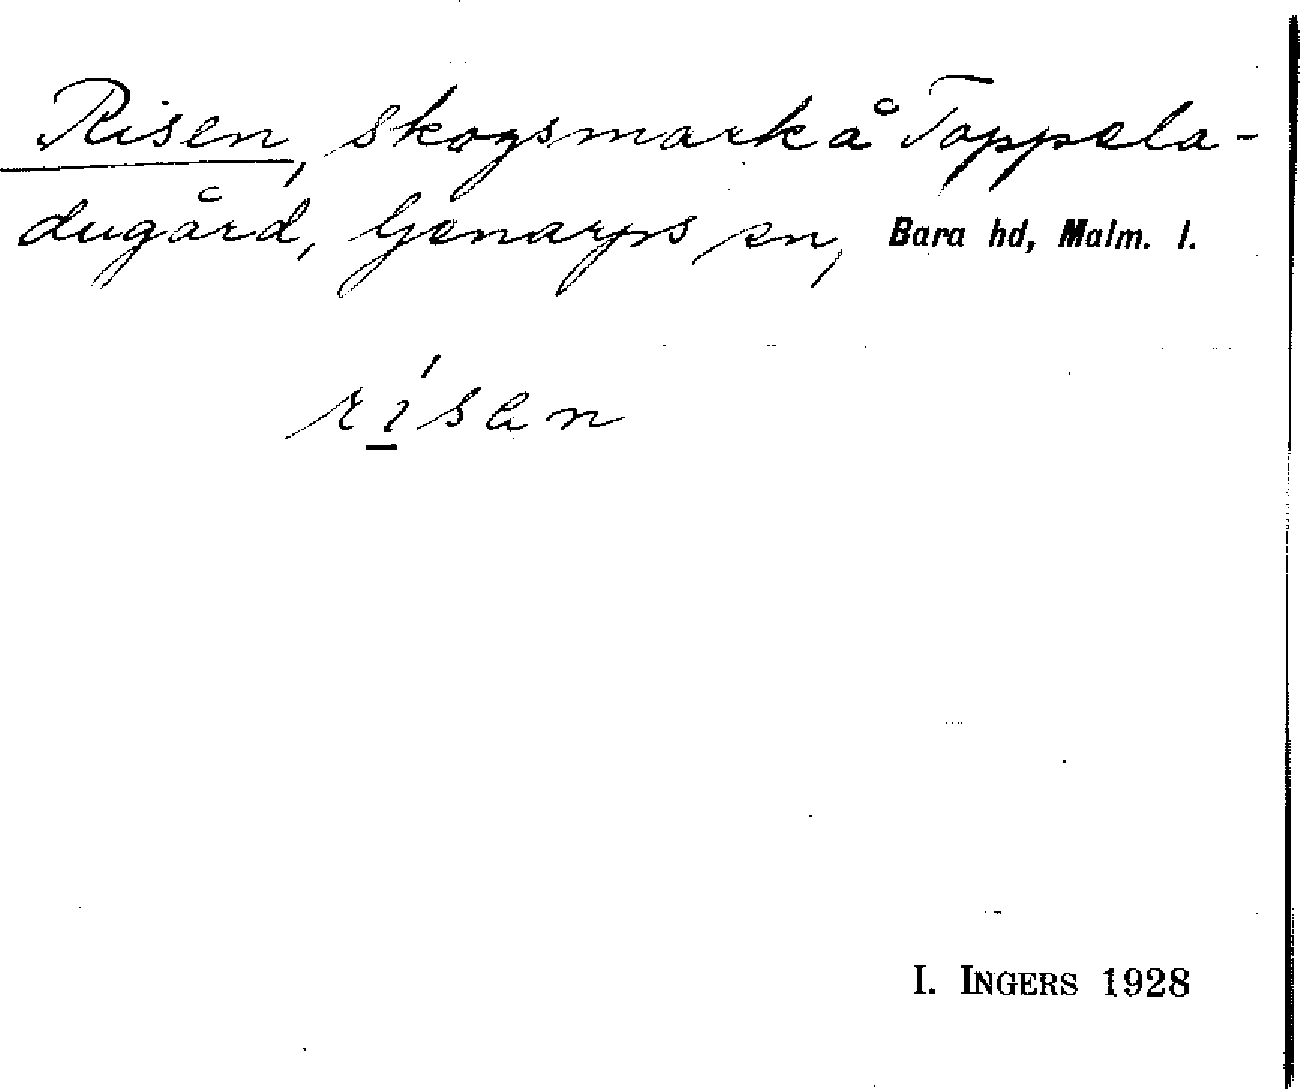 Risen, skogsmark å Toppela-
dugård, Genarps sn, Bara hd, Malm. l.
rísen
I. INGERS 1928